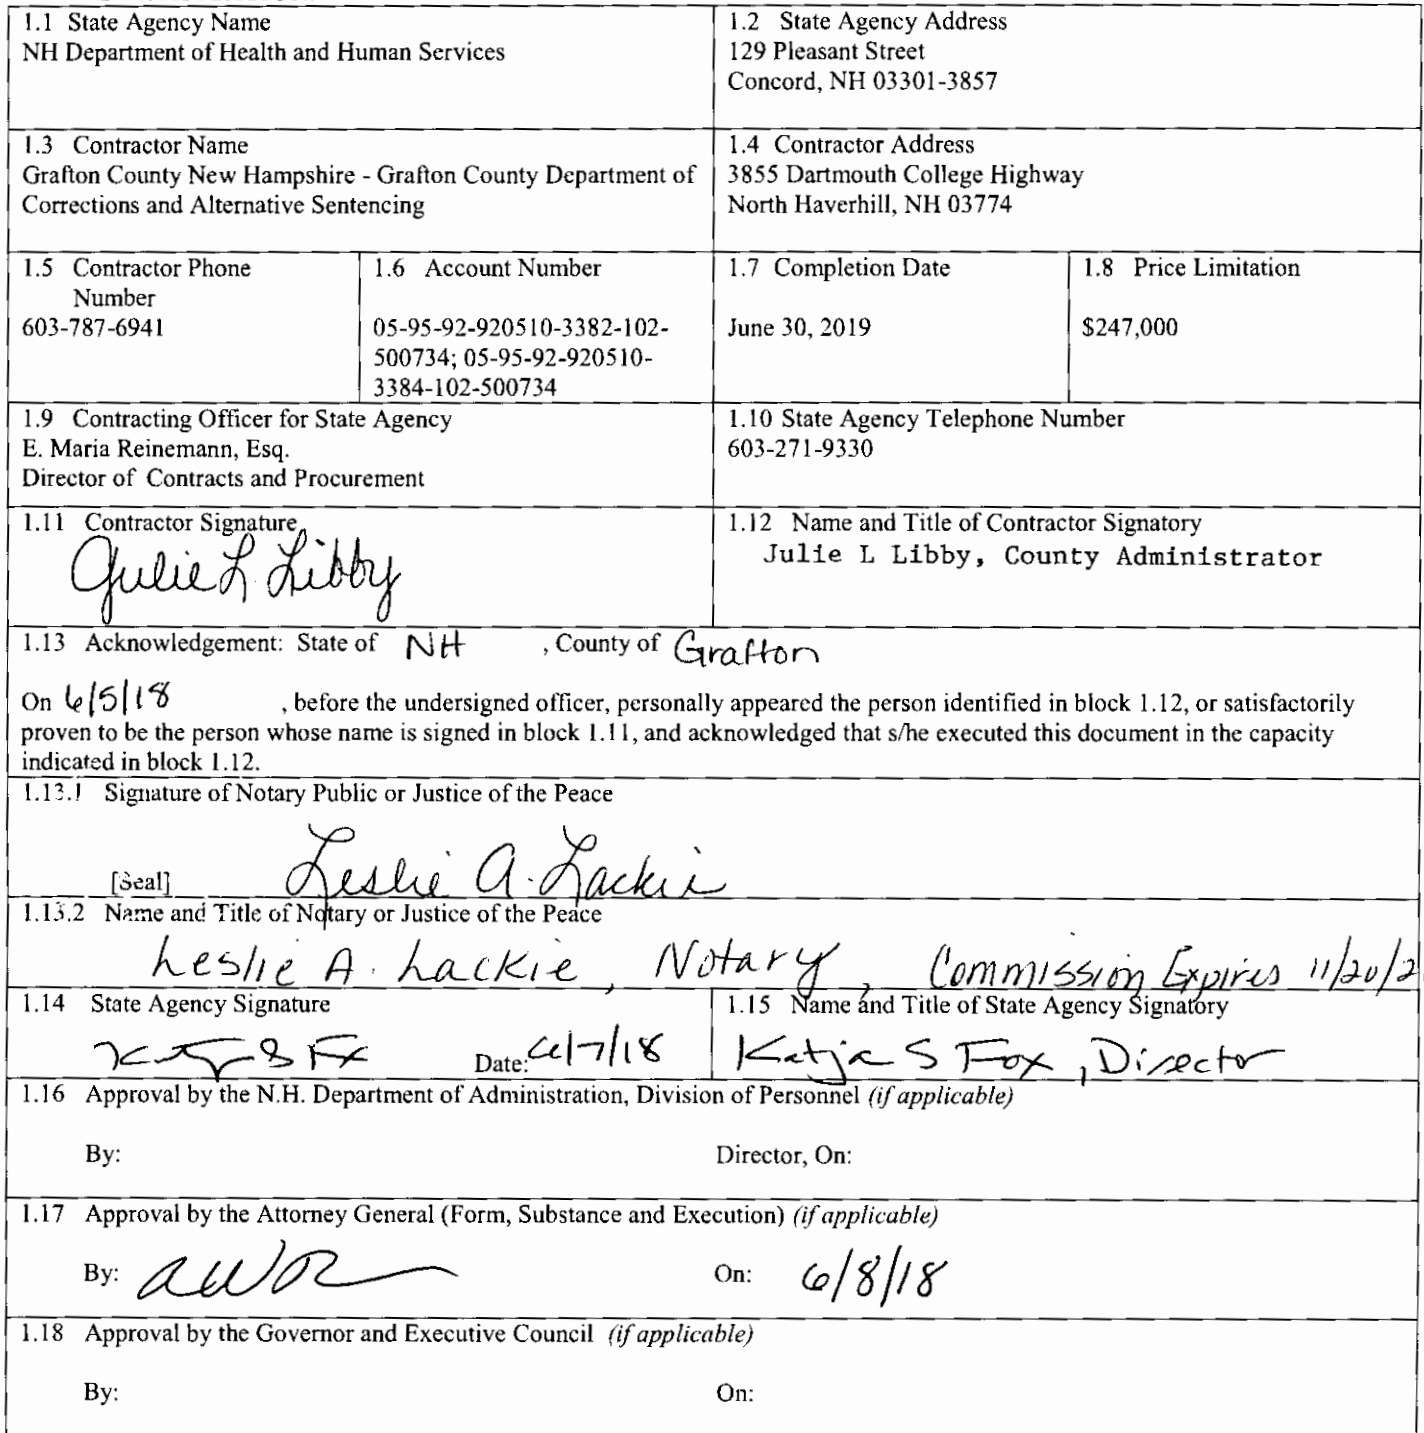 1.1 State Agency Name
NH Department of Health and Human Services
1.2 State Agency Address
129 Pleasant Street
Concord, NH 03301-3857
1.3 Contractor Name
Grafton County New Hampshire - Grafton County Department of
Corrections and Alternative Sentencing
1.4 Contractor Address
3855 Dartmouth College Highway
North Haverhill, NH 03774
1.5 Contractor Phone
Number
603-787-6941
1.6 Account Number
05-95-92-920510-3382-102-
500734; 05-95-92-920510-
3384-102-500734
1.7 Completion Date
June 30, 2019
1.8 Price Limitation
$247,000
1.9 Contracting Officer for State Agency
E. Maria Reinemann, Esq.
Director of Contracts and Procurement
1.10 State Agency Telephone Number
603-271-9330
1.11 Contractor Signature
Julie L Libby
1.12 Name and Title of Contractor Signatory
Julie L Libby, County Administrator
1.13 Acknowledgement: State of NH , County of Grafton
On 6/5/18 , before the undersigned officer, personally appeared the person identified in block 1.12, or satisfactorily
proven to be the person whose name is signed in block 1.11, and acknowledged that s/he executed this document in the capacity
indicated in block 1.12.
1.13.1 Signature of Notary Public or Justice of the Peace
[Seal] Leslie A. Lackie
1.13.2 Name and Title of Notary or Justice of the Peace
Leslie A. Lackie, Notary, Commission Expires 11/20/2
1.14 State Agency Signature
Date: 6/7/18
1.15 Name and Title of State Agency Signatory
Katja S Fox, Director
1.16 Approval by the N.H. Department of Administration, Division of Personnel (if applicable)
By: Director, On:
1.17 Approval by the Attorney General (Form, Substance and Execution) (if applicable)
By: On: 6/8/18
1.18 Approval by the Governor and Executive Council (if applicable)
By: On: